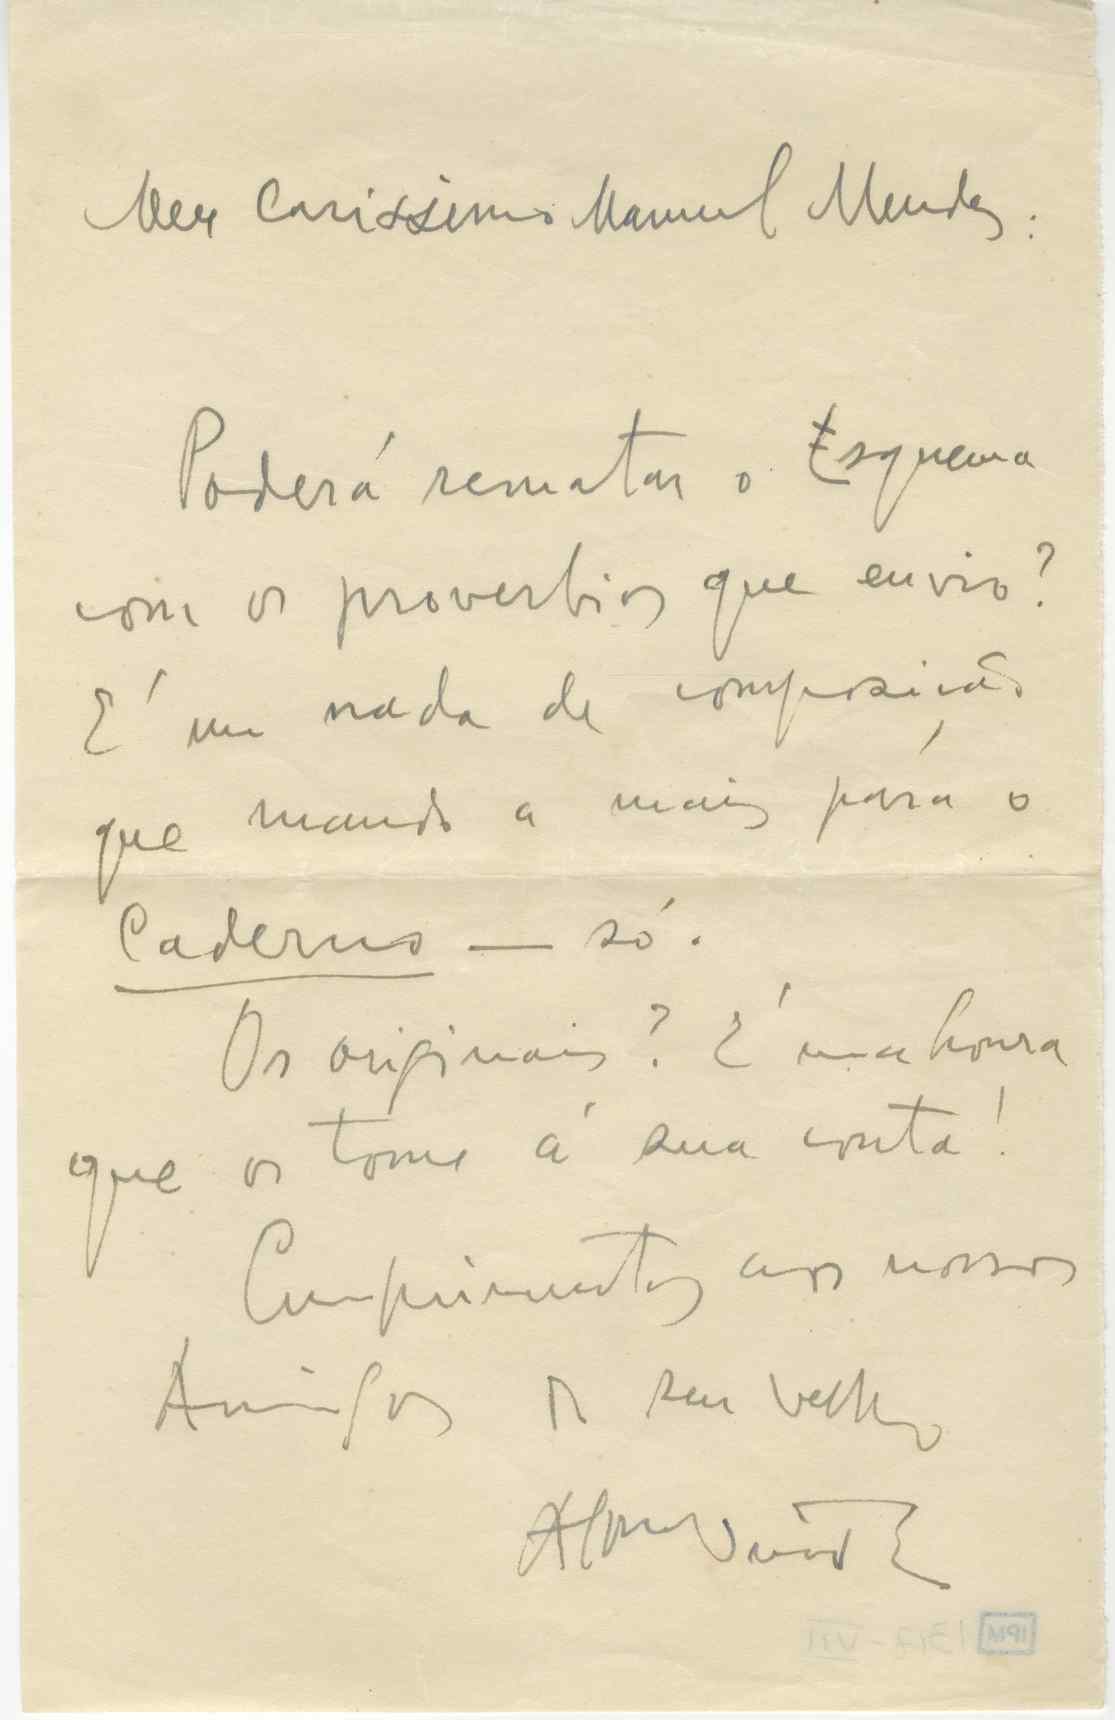 Meu Carissimo Manuel Mendes:
Poderá rematar o Esquema
com os proverbios que envio?
É um nada de composicão
que mando a mais pára o
Caderno — só.
Os originais? É uma honra
que os tome á sua conta!
Cumprimentos aos nossos
Amigos do seu velho
Afonso Duarte